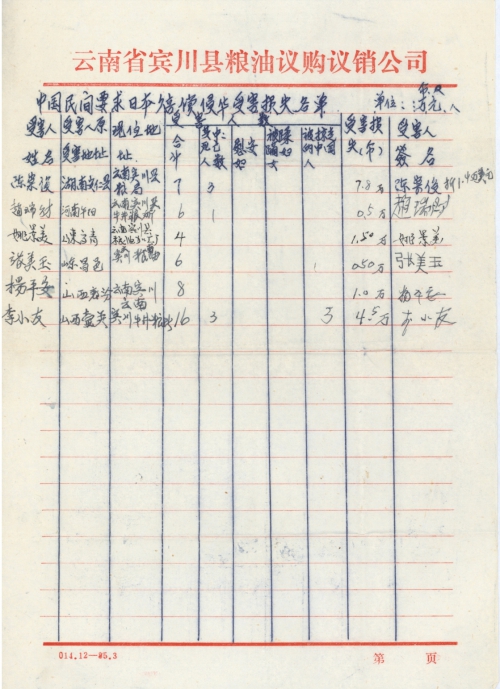 云南省宾川县粮油议购议销公司
中国民间要求日本赔偿侵华受害损失名单
单位:万元、人
受害人姓名 受害人原受害地址 现住地址 受害人数 合计 其中:死亡人数 慰安妇 被蹂躏妇女 被掳走的中国人 受害损失(币) 受害人签名
陈崇俊 湖南 云南宾川县粮局 7 3 7.8万 陈崇俊
河南 云南宾川县牛井粮所 6 1 0.5万
姚景美 山东 云南宾川县 4 1.50万 姚景美
张美玉 山东昌邑 宾川 6 1 0.50万 张美玉
杨平安 山西 云南宾川 8 1.0万 杨平安
李小友 山西壶关 云南宾川牛井粮所 16 3 3 4.5万 李小友
014.12—85.3
第 页